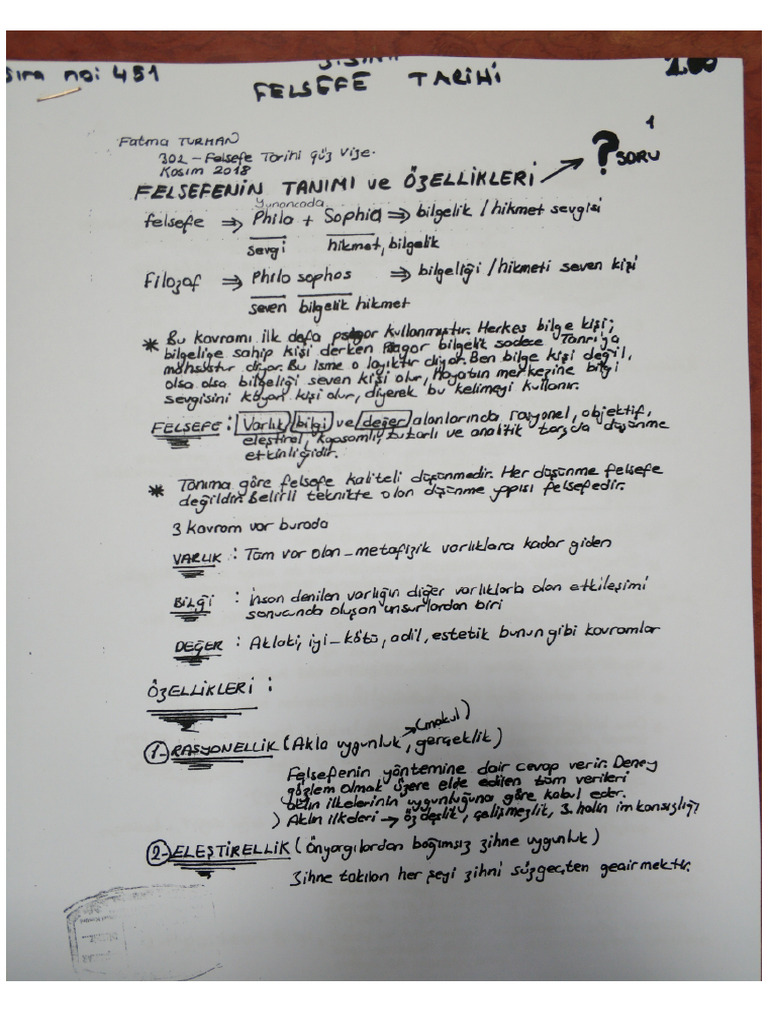 Sıra no: 451
FELSEFE TARİHİ
1
Fatma TURHAN
302 - Felsefe Tarihi güz vize.
Kasım 2018
? SORU
FELSEFENİN TANIMI ve ÖZELLİKLERİ
Yunancada
felsefe => Philo + Sophia => bilgelik / hikmet sevgisi
sevgi hikmet, bilgelik
Filozof => Philo sophos => bilgeliği / hikmeti seven kişi
seven bilgelik hikmet
* Bu kavramı ilk defa kullanmıştır. Herkes bilge kişi;
bilgeliğe sahip kişi derken bilgelik sadece Tanrı'ya
mahsustur diyor. Bu isme o layıktır diyor. Ben bilge kişi değil,
olsa olsa bilgeliği seven kişi olur, Hayatın merkezine bilgi
sevgisini koyan kişi olur, diyerek bu kelimeyi kullanır.
FELSEFE : Varlık, bilgi ve değer alanlarında rasyonel, objektif,
eleştirel, kapsamlı, tutarlı ve analitik tarzda düşünme
etkinliğidir.
* Tanıma göre felsefe kaliteli düşünmedir. Her düşünme felsefe
değildir. Belirli teknikte olan düşünme yapısı felsefedir.
3 kavram var burada
VARLIK : Tüm var olan - metafizik varlıklara kadar giden
BİLGİ : İnsan denilen varlığın diğer varlıklarla olan etkileşimi
sonucunda oluşan unsurlardan biri
DEĞER : Ahlaki, iyi - kötü, adil, estetik bunun gibi kavramlar
ÖZELLİKLERİ :
(makul)
1- RASYONELLİK (Akla uygunluk, gerçeklik)
Felsefenin yöntemine dair cevap verir. Deney
gözlem olmak üzere elde edilen tüm verileri
aklın ilkelerinin uygunluğuna göre kabul eder.
) Aklın ilkeleri → özdeşlik, çelişmezlik, 3. halin imkansızlığı
2- ELEŞTİRELLİK (Önyargılardan bağımsız zihne uygunluk)
Zihne takılan her şeyi zihni süzgeçten geçirmektir.